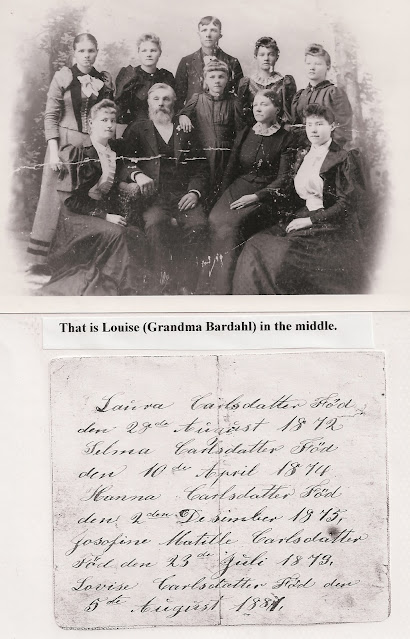 That is Louise (Grandma Bardahl) in the middle.
Laura Carlsdatter Föd
den 29de August 1872
Selma Carlsdatter Föd
den 10de April 1874
Hanna Carlsdatter Föd
den 2den Desimber 1875,
Josofine Matilde Carlsdatter
Föd den 23de Juli 1879,
Lovise Carlsdatter Föd den
5de August 1881,